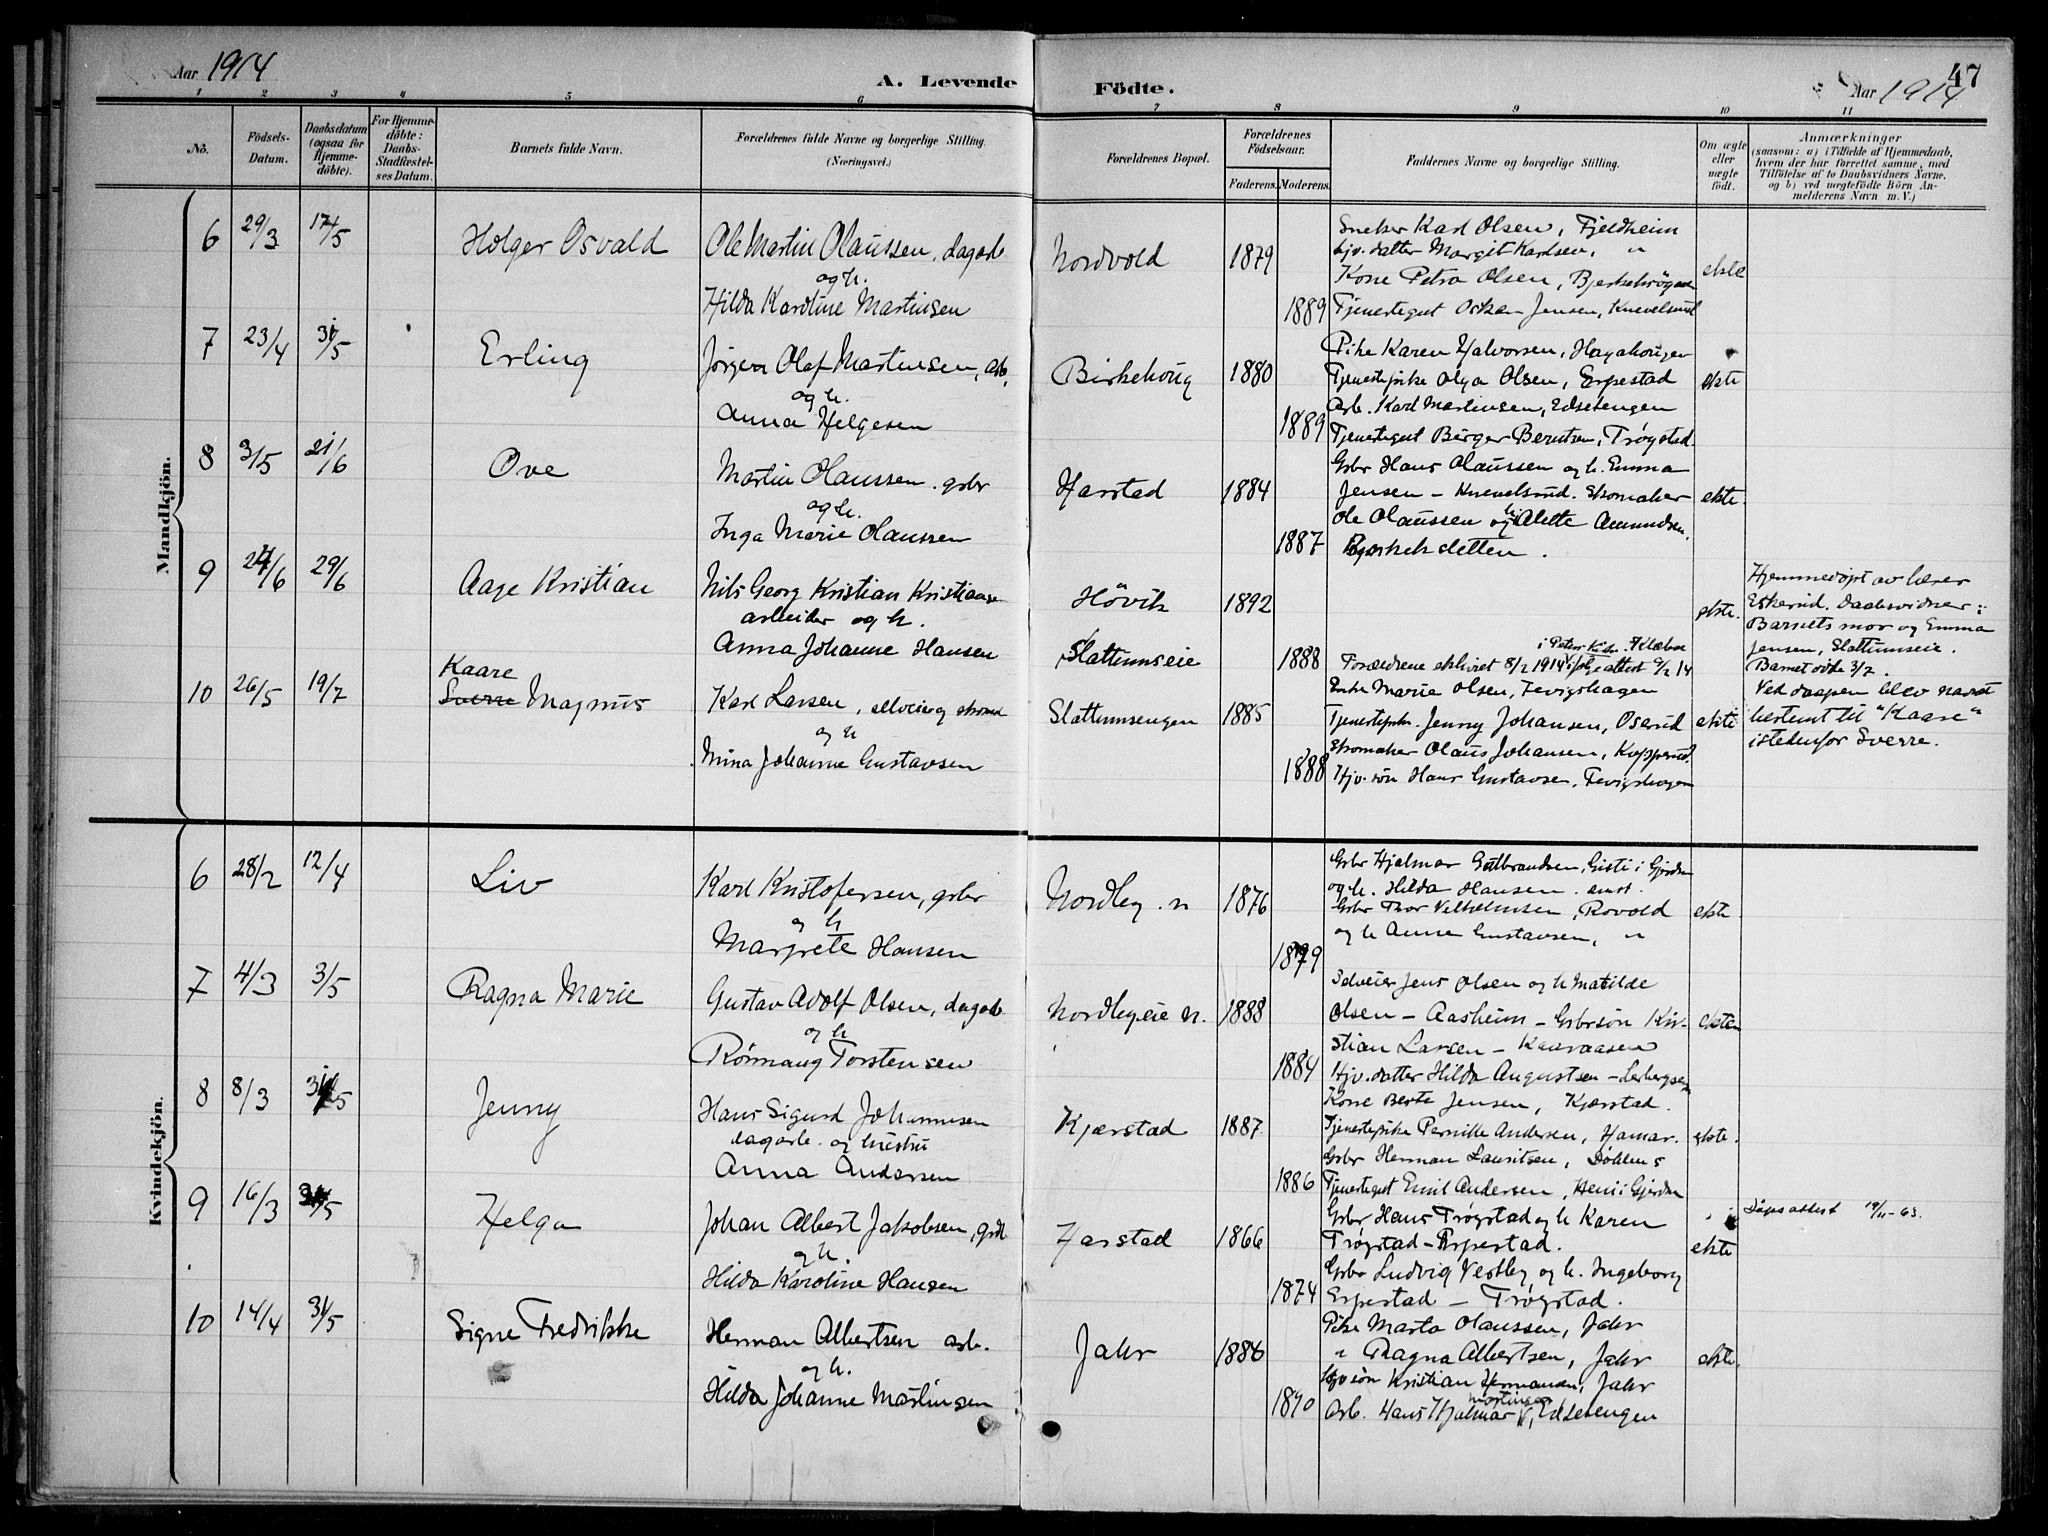 Aar 1914
A. Levende
Födte.
Aar 1914
47
1 2 3 4 5 6 7 8 9 10 11
No.
Födsels-
Datum.
Daabsdatum
(ogsaa for
Hjemme-
döbte).
For Hjemme-
döbte:
Daabs-
Stadfæstel-
ses Datum.
Barnets fulde Navn.
Forældrenes fulde Navne og borgerlige Stilling.
(Næringsvei.)
Forældrenes Bopæl.
Forældrenes
Födselsaar.
Faderens. Moderens.
Faddernes Navne og borgerlige Stilling.
Om ægte
eller
uægte
født.
Anmærkninger
(saasom: a) i Tilfælde af Hjemmedaab,
hvem der har forrettet samme, med
Tilföielse af to Daabsvidners Navne.
og b) ved uægtefödte Börn An-
melderens Navn m. V.)
Mandkjön.
6 29/3 17/5 Holger Osvald
Ole Martin Olaussen, dagarb
og h.
Hilda Karoline Martinsen
Nordvold 1879
1889
Snekker Karl Olsen, Fjeldheim
hjv. datter Margit Karlsen, "
Kone Petra Olsen,
Tjenestegut Oskar Jensen, Knevelsrud
ekte
7 23/4 31/5 Erling
Jörgen Olaf Martinsen, arb.
og h.
Anna Helgesen
Birkehoug 1880
1889
Pike Karen Halvorsen, Hagahougen
Tjenestepike Olga Olsen, Erpestad
Arb. Karl Martinsen, Edsetengen
Tjenestegut Birger Berntsen, Trøgstad.
ekte
8 3/5 21/6 Ove
Martin Olaussen. gsbr
og h.
Inga Marie Olaussen
Harstad 1884
1887
Gsbr Hans Olaussen og h. Emma
Jensen – Knevelsrud. Skomaker
Ole Olaussen og h. Alette Amundsen,
ekte.
9 24/6 29/6 Aage Kristian
Nils Georg Kristian Kristiansen
arbeider og h.
Anna Johanne Hansen
Hövik 1892
Slattumseie 1888
i Peters Kirke
Forældrene ekteviet 8/2 1914 ifølge attest 9/2 14
ekte.
Hjemmedøpt av læser
Eskerud. Daabsvidner:
Barnets mor og Emma
Jensen, Slattumseie.
Barnet døde 3/7.
10 26/5 19/7 Kaare
Sverre Magnus
Karl Larsen, selveier og skomak
og h
Mina Johanne Gustavsen
Slattumsengen 1885
1888
Enke Marie Olsen, Tevigshagen
Tjenestepike. Jenny Johansen, Oserud
Skomaker Olaus Johansen, Kopperud.
Hjv. søn Hans Gustavsen, Tevigshagen
ekte
Ved daapen blev navnet
bestemt til "Kaare"
istedenfor Sverre.
Kvindekjön.
6 28/2 12/4 Liv
Karl Kristofersen, gsbr
og h
Margrete Hansen
Nordby. n 1876
1879
Gsbr Hjalmar Gulbrandsen, Gisti i Gjerdrum
og h. Hilda Hansen.
Gsbr Thor Vilhelmsen, Rovold
og h Anne Gustavsen, "
ekte.
7 4/3 3/5 Ragna Marie
Gustav Adolf Olsen, dagarb
og h
Rønnaug Torstensen
Nordbyeie n. 1888
1884
Selveier Jens Olsen og h Matilde
Olsen – Aasheim – Gsbrsøn Kri-
stian Larsen – Kaaraasen
Hjv. datter Hilda Augustsen –
ekte
8 8/3 31/5 Jenny
Hans Sigurd Johannesen
dagarb. og hustru
Anna Andersen
Kjærstad 1887.
1886
Kone Berte Jensen, Kjærstad.
Tjenestepike Pernille Andersen, Hamar.
Gsbr Herman Lauritsen, Døhlen s
Tjenestegut Emil Andersen, Heni i Gjerdrum
ekte.
9 16/3 31/5 Helga
Johan Albert Jakobsen, gsb
og h.
Hilda Karoline Hansen
Harstad 1866
1874
Gsbr Hans Trøgstad og h Karen
Trøgstad – Erpestad.
Gsbr Ludvig Vestby og h. Ingeborg
Erpestad – Trøgstad.
ekte
Dåpsattest 19/11-63.
10 14/4 31/5 Signe Fredrikke
Herman Albertsen arb.
og h.
Hilda Johanne Martinsen
Jahr 1886
1890
Pike Marta Olaussen, Jahr
" Ragna Albertsen, Jahr
Hjv søn Kristian Hermansen, Jahr
Martinsen
Arb. Hans Hjalmar V, Edsetengen
ekte.